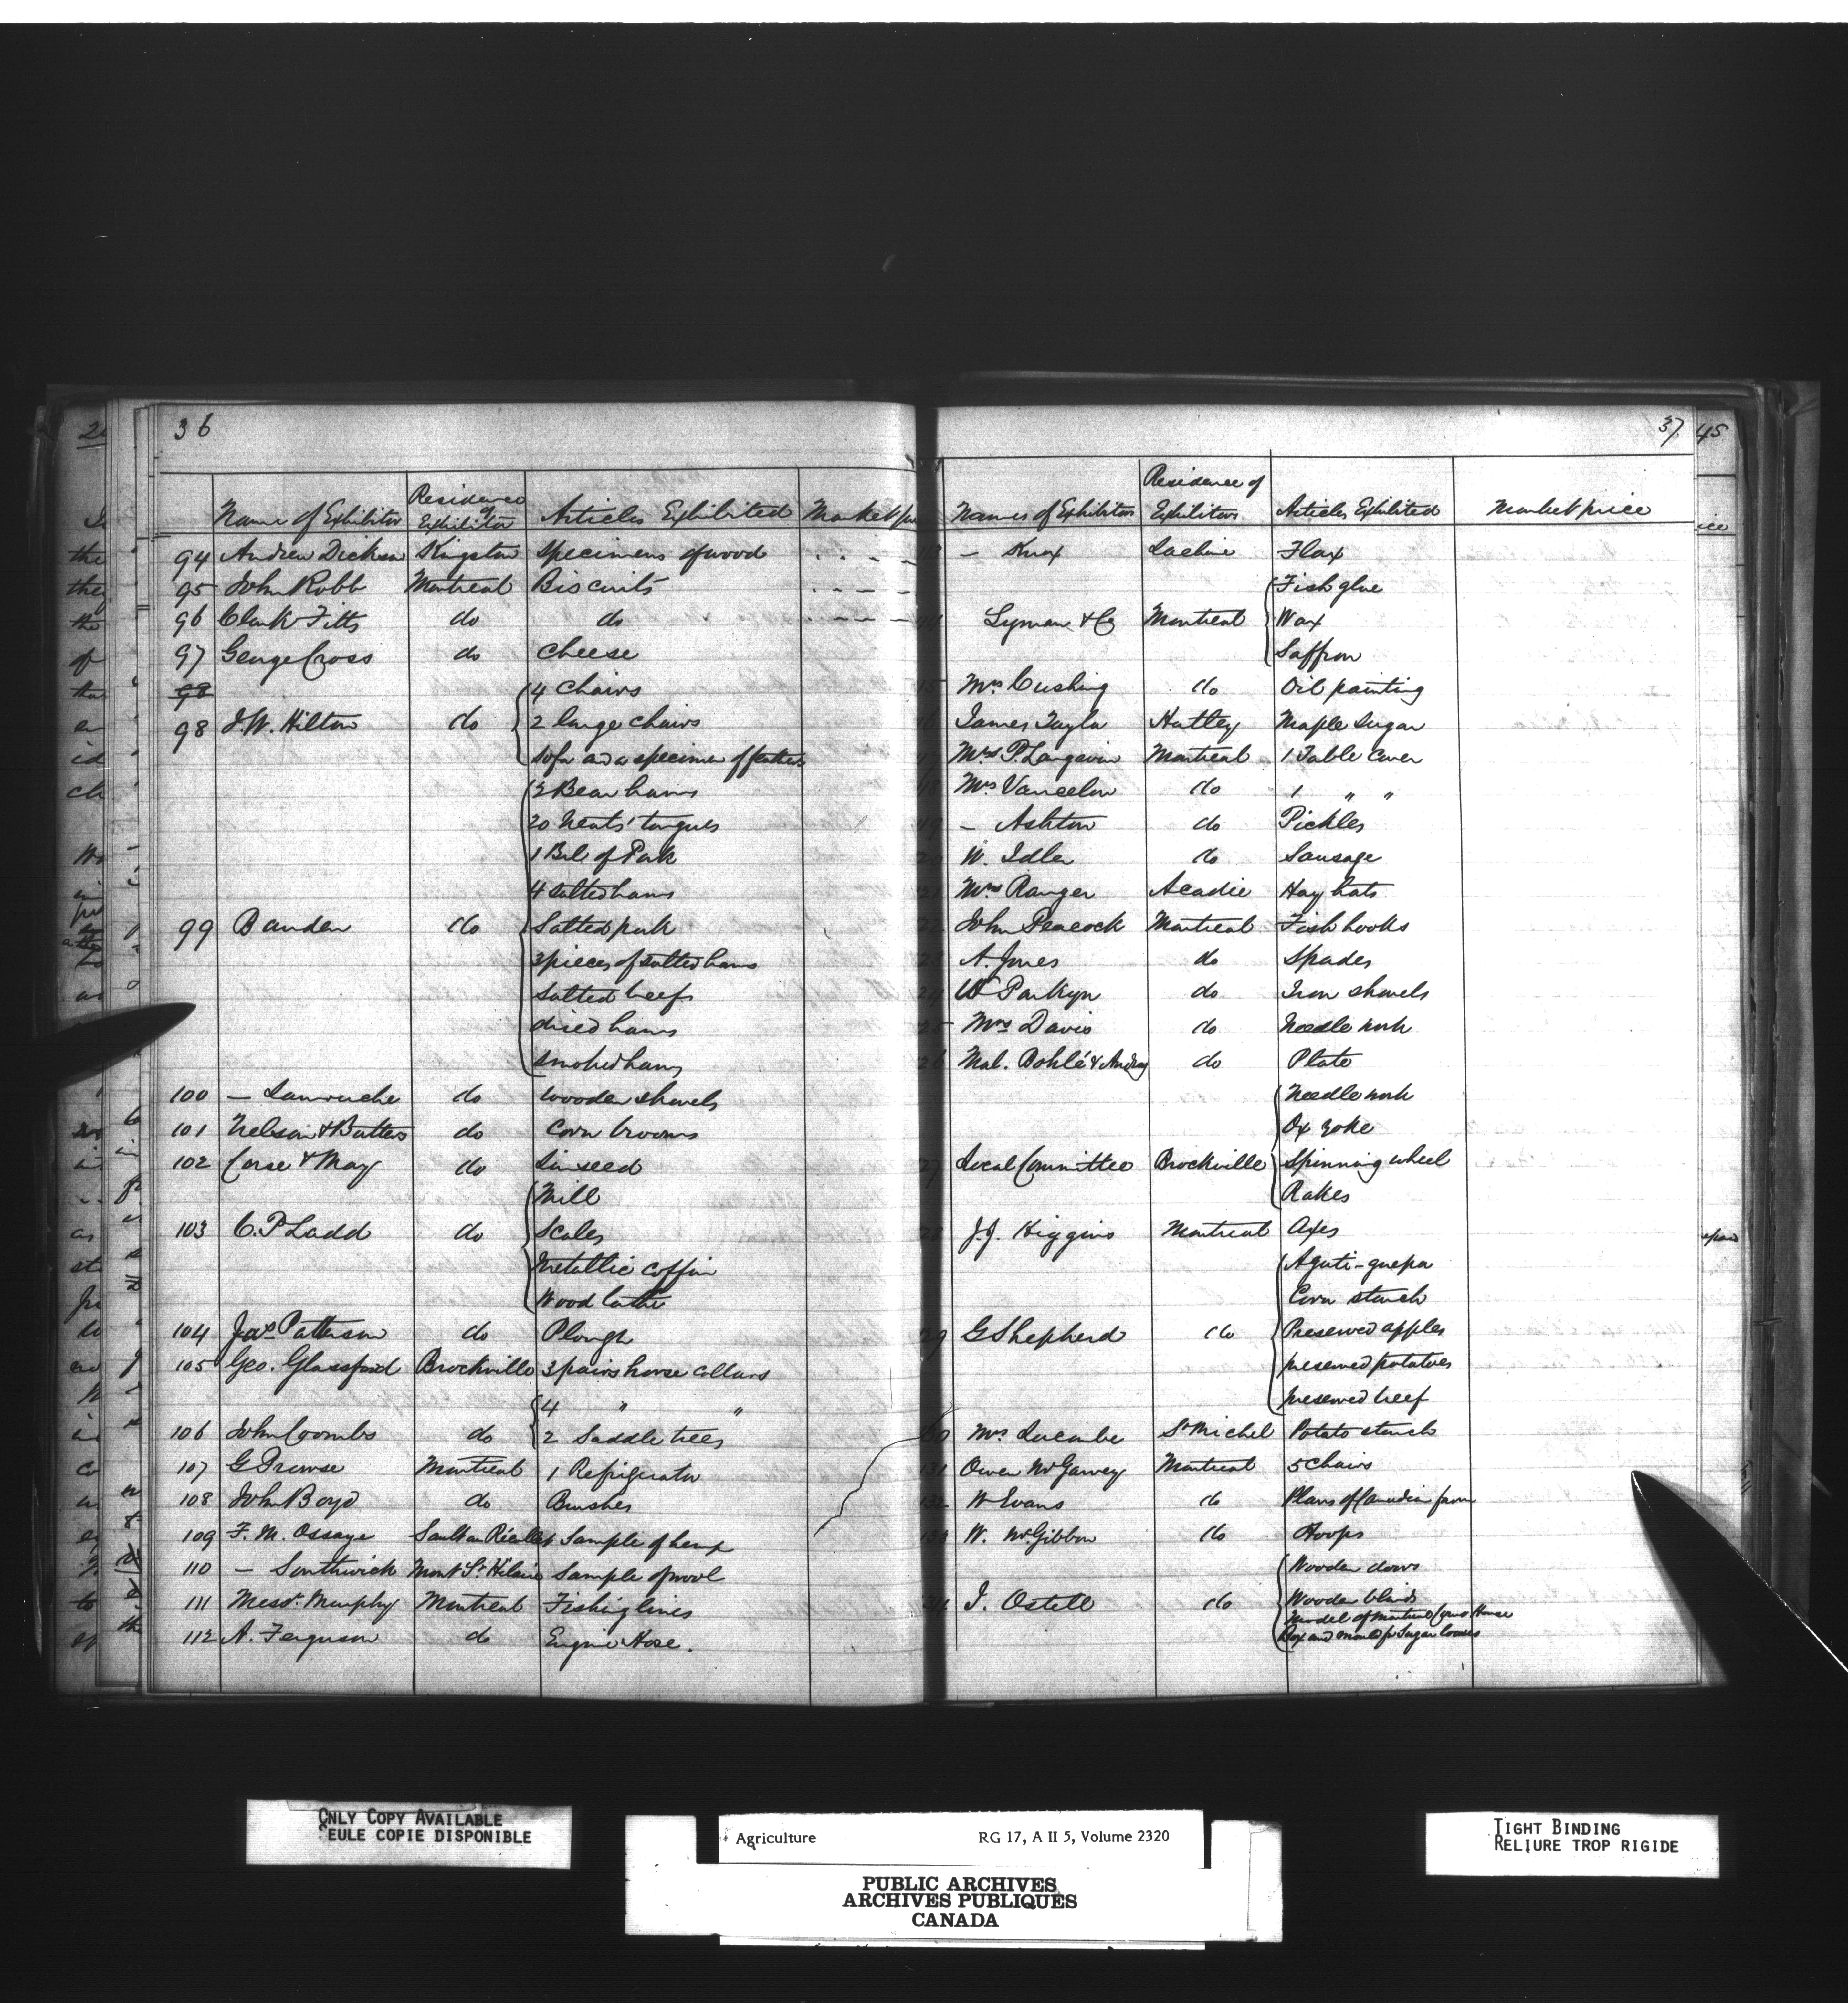 36
Name of Exhibitor Residence of Exhibitor Articles Exhibited Market
94 Andrew Dickson Kingston Specimens of wood
95 John Robb Montreal Biscuits
96 Clark Fitts do do
97 George Cross do Cheese
98
4 Chairs
98 J.W. Hilton do 2 large chairs
Sofa and a specimen of
2 Bear hams
20 Neats' tongues
1 Brl of Pork
4 Salted hams
99 Bauden do Salted pork
3 pieces of salted hams
Salted beef
dried hams
Smoked hams
100 — Lamouche do Wooden shovels
101 Nelson & Butters do Corn brooms
102 Corse & May do Linseed
Mill
103 C.P. Ladd do Scales
Metallic coffin
Wood lathe
104 Jas Patterson do Plough
105 Geo. Glassford Brockville 3 pairs horse collars
4 " "
106 John Coombs do 2 Saddle trees
107 G Prowse Montreal 1 Refrigerator
108 John Boyd do Brushes
109 F. M. Ossaye Sault au Récollet Sample of hemp
110 — Southwick Mont St Hilaire Sample of wool
111 Messrs. Murphy Montreal Fishing lines
112 A. Ferguson do Engine Hose.
37
Names of Exhibitors Residence of Exhibitors Articles Exhibited Market price
— Knox Lachine Flax
Fish glue
Lyman & Co Montreal Wax
Saffron
Mrs Cushing do Oil painting
James Taylor Hatley Maple Sugar
Mrs P. Langevin Montreal 1 Table Cover
Mrs Vancelow do 1 " "
— Ashton do Pickles
W. Idler do Sausage
Mrs Ranger Acadie Hay hats
John Peacock Montreal Fish hooks
A. Jones do Spades
W Parkyn do Iron shovels
Mrs Davis do Needle work
Bohlé & do Plate
Needle work
Ox yoke
Local Committee Brockville Spinning wheel
Rakes
J.J. Higgins Montreal Axes
Aguti-guepa
Corn starch
G Shepherd do Preserved apples
preserved potatoes
preserved beef
Mrs Lacombe St Michel Potato starch
131 Owen McGarvey Montreal 5 Chairs
132 W Evans do Plans of Canadian farm
133 W. McGibbon do Hoops
Wooden doors
J. Ostell do Wooden blinds
Model of Montreal Customs House
Box and mould for Sugar loaves
45
ONLY COPY AVAILABLE
SEULE COPIE DISPONIBLE
Agriculture RG 17, A II 5, Volume 2320
PUBLIC ARCHIVES
ARCHIVES PUBLIQUES
CANADA
TIGHT BINDING
RELIURE TROP RIGIDE